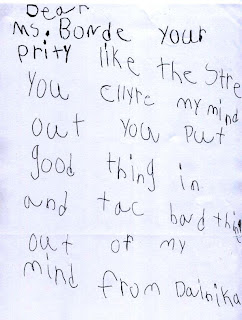 Dear
Ms. Bonde your
prity like the Stre
you Cllyre my mind
out you put
good thing in
and tac bard thing
out of my
mind from Dainika